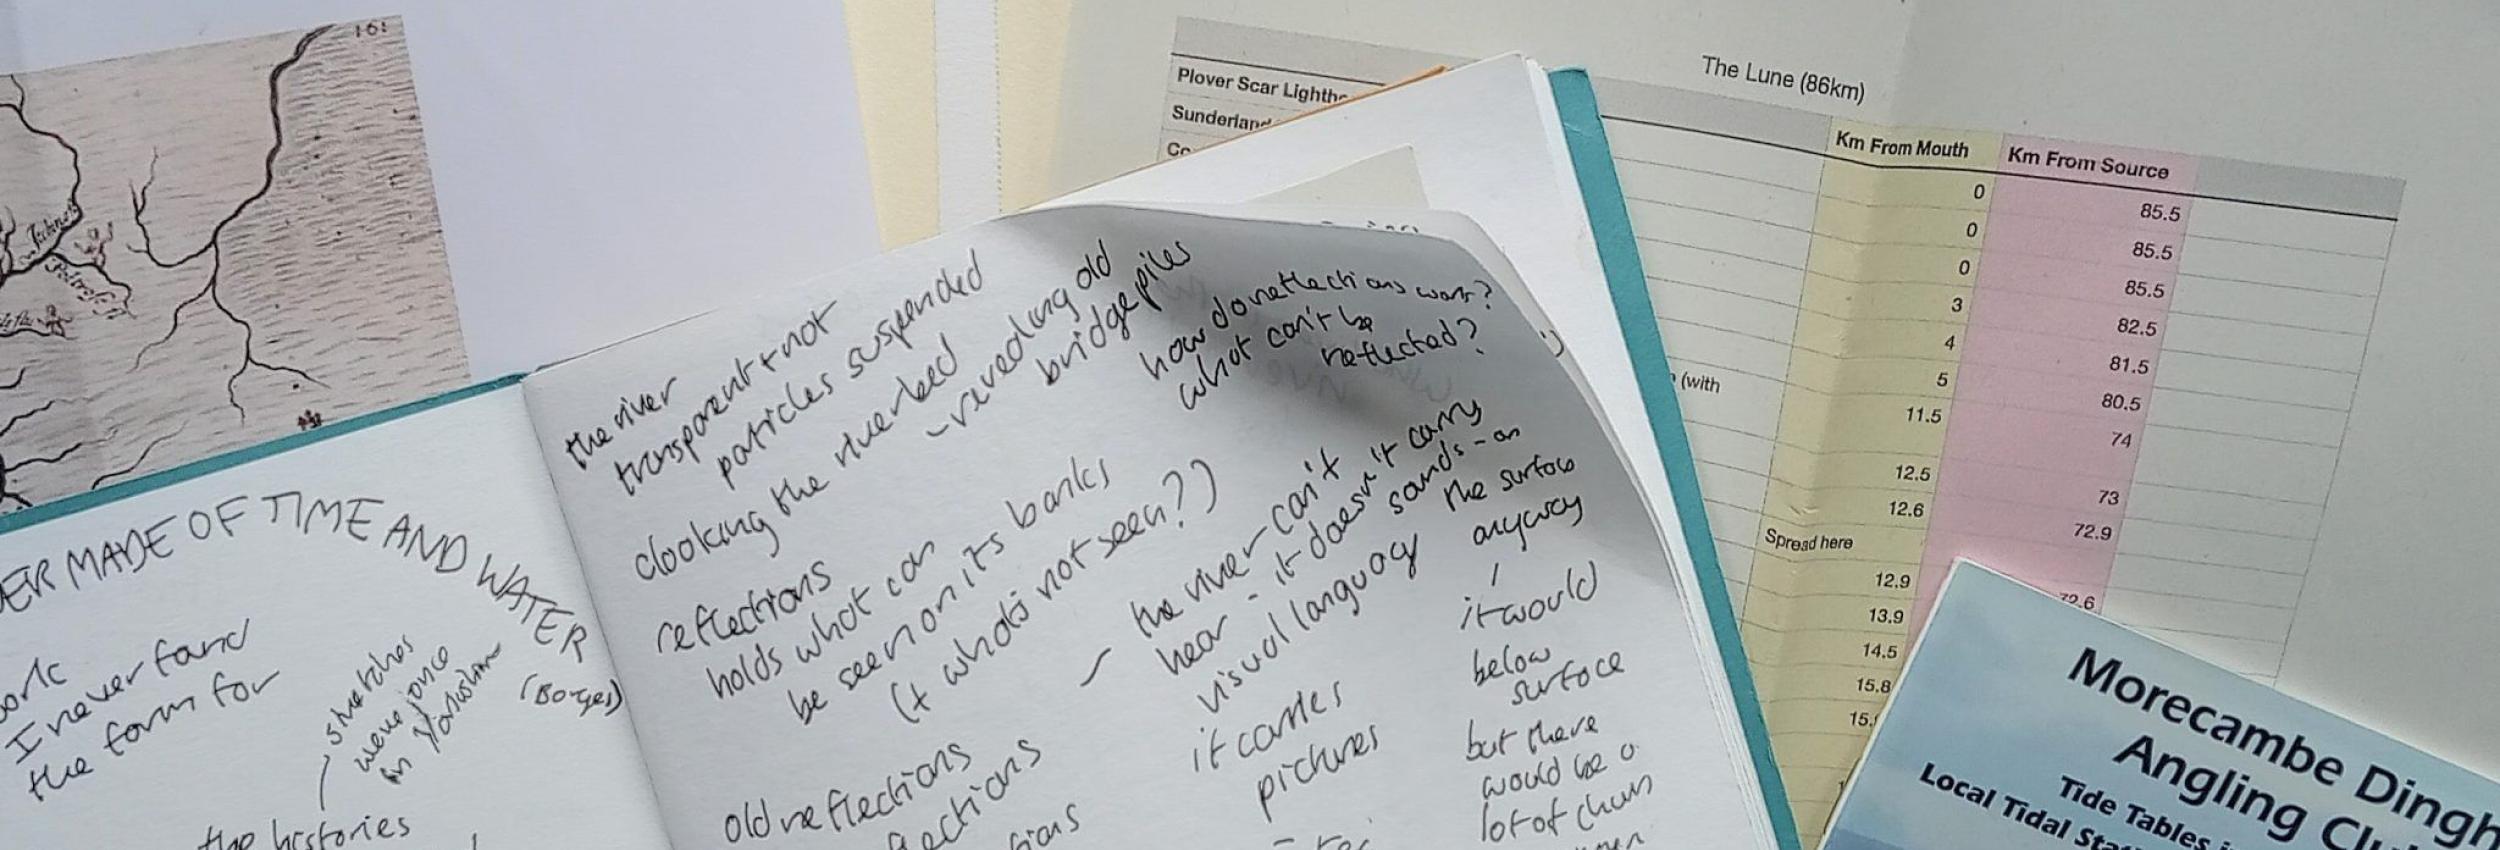 161
The Lune (86km)
Plover Scar Lightho
Sunderland
Co
Km From Mouth
Km From Source
0
85.5
0
85.5
0
85.5
3
82.5
4
81.5
5
80.5
(with
11.5
74
12.5
73
12.6
72.9
Spread here
12.9
72.6
13.9
14.5
15.8
15.
Morecambe Dingh
Angling Clu
Tide Tables i
Local Tidal Stat
ER MADE OF TIME AND WATER
(Borges)
ork
I never fand
the form for
stretches
were once
in Yorkshire
the histories
the river
transparent + not
particles suspended
clooking the riverbed
- revealing old
bridge piles
how do reflections work?
what can't be
reflected?
reflections
holds what can
be seen on its banks
(+ what's not seen?)
- the river can't
hear - it doesn't carry
sounds - on
the surface
anyway
visual language
it carries
pictures
it would
below
surface
but there
would be a
lot of churn
old reflections
flections
tions